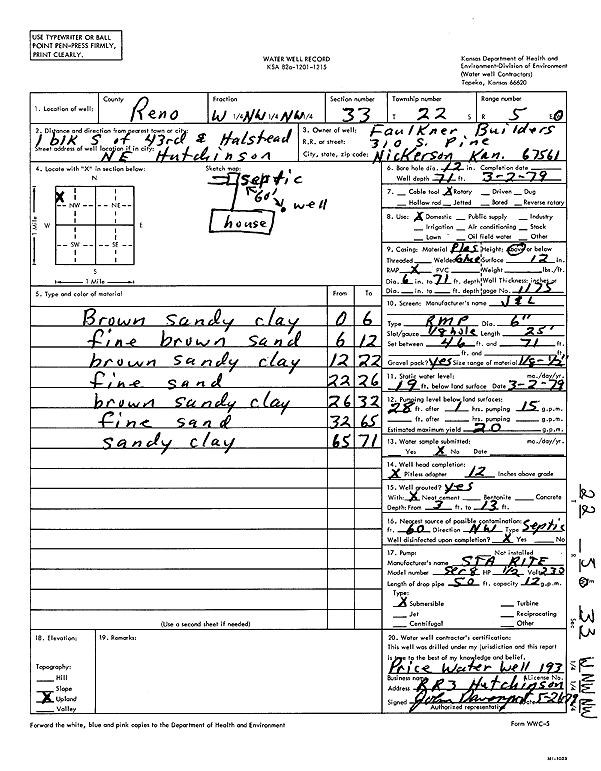 USE TYPEWRITER OR BALL
POINT PEN-PRESS FIRMLY,
PRINT CLEARLY.
WATER WELL RECORD
KSA 82a-1201-1215
Kansas Department of Health and
Environment-Division of Environment
(Water well Contractors)
Topeka, Kansas 66620
1. Location of well: County Reno Fraction W 1/4 NW 1/4 NW 1/4 Section number 33 Township number T 22 S Range number R 5 E
2. Distance and direction from nearest town or city: 1 blk S of 43rd & Halstead
Street address of well location if in city: NE Hutchinson
3. Owner of well: Faulkner Builders
R.R. or street: 310 S. Pine
City, state, zip code: Nickerson Kan. 67561
4. Locate with "X" in section below:
N
X
NW NE
W E
SW SE
S
1 Mile
1 Mile
Sketch map:
septic
60'
well
house
6. Bore hole dia. 12 in. Completion date
Well depth 71 ft. 3-2-79
7. Cable tool X Rotary Driven Dug
Hollow rod Jetted Bored Reverse rotary
8. Use: X Domestic Public supply Industry
Irrigation Air conditioning Stock
Lawn Oil field water Other
9. Casing: Material Plas Height: Above or below
Threaded Welded Glue Surface 12 in.
RMP X PVC Weight lbs./ft.
Dia. 6 in. to 71 ft. depth Wall Thickness: inches or
Dia. in. to ft. depth gage No. .1175
5. Type and color of material From To
Brown sandy clay 0 6
fine brown sand 6 12
brown sandy clay 12 22
fine sand 22 26
brown sandy clay 26 32
fine sand 32 65
sandy clay 65 71
(Use a second sheet if needed)
10. Screen: Manufacturer's name J&L
Type RMP Dia. 6"
Slot/gauze 1/8 hole Length 25'
Set between 46 ft. and 71 ft.
ft. and ft.
Gravel pack? yes Size range of material 1/8-1/2"
11. Static water level: mo./day/yr.
19 ft. below land surface Date 3-2-79
12. Pumping level below land surfaces:
28 ft. after 1 hrs. pumping 15 g.p.m.
ft. after hrs. pumping g.p.m.
Estimated maximum yield 20 g.p.m.
13. Water sample submitted: mo./day/yr.
Yes X No Date
14. Well head completion:
X Pitless adapter 12 Inches above grade
15. Well grouted? yes
With: X Neat cement Bentonite Concrete
Depth: From 3 ft. to 13 ft.
16. Nearest source of possible contamination:
ft. 60 Direction NW Type Septic
Well disinfected upon completion? X Yes No
17. Pump: Not installed
Manufacturer's name STA RITE
Model number Ser 8 HP 1/2 Volts 230
Length of drop pipe 50 ft. capacity 12 g.p.m.
Type:
X Submersible Turbine
Jet Reciprocating
Centrifugal Other
18. Elevation:
Topography:
Hill
Slope
X Upland
Valley
19. Remarks:
20. Water well contractor's certification:
This well was drilled under my jurisdiction and this report
is true to the best of my knowledge and belief.
Price Water Well 193
Business name License No.
Address RR3 Hutchinson
Signed John Davenport
Authorized representative
Forward the white, blue and pink copies to the Department of Health and Environment
Form WWC-5
22 - 5 33 W NW NW
Sec 1/4 1/4 1/4